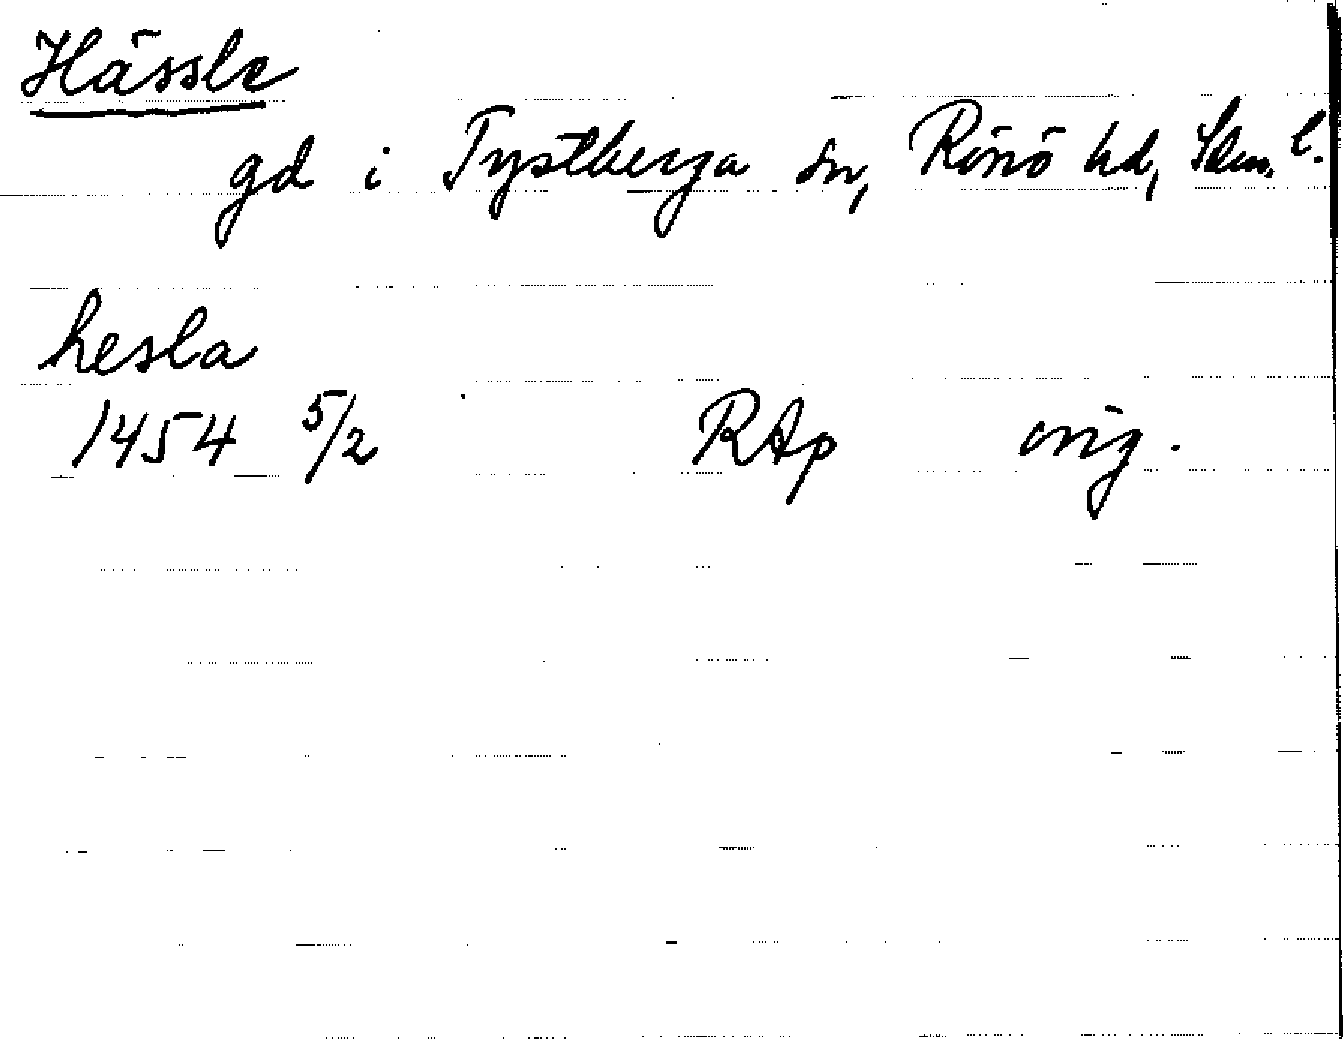 Hässle
gd i Tystberga sn, Rönö hd, Slm. l.
hesla
1454 5/2 RAp orig.